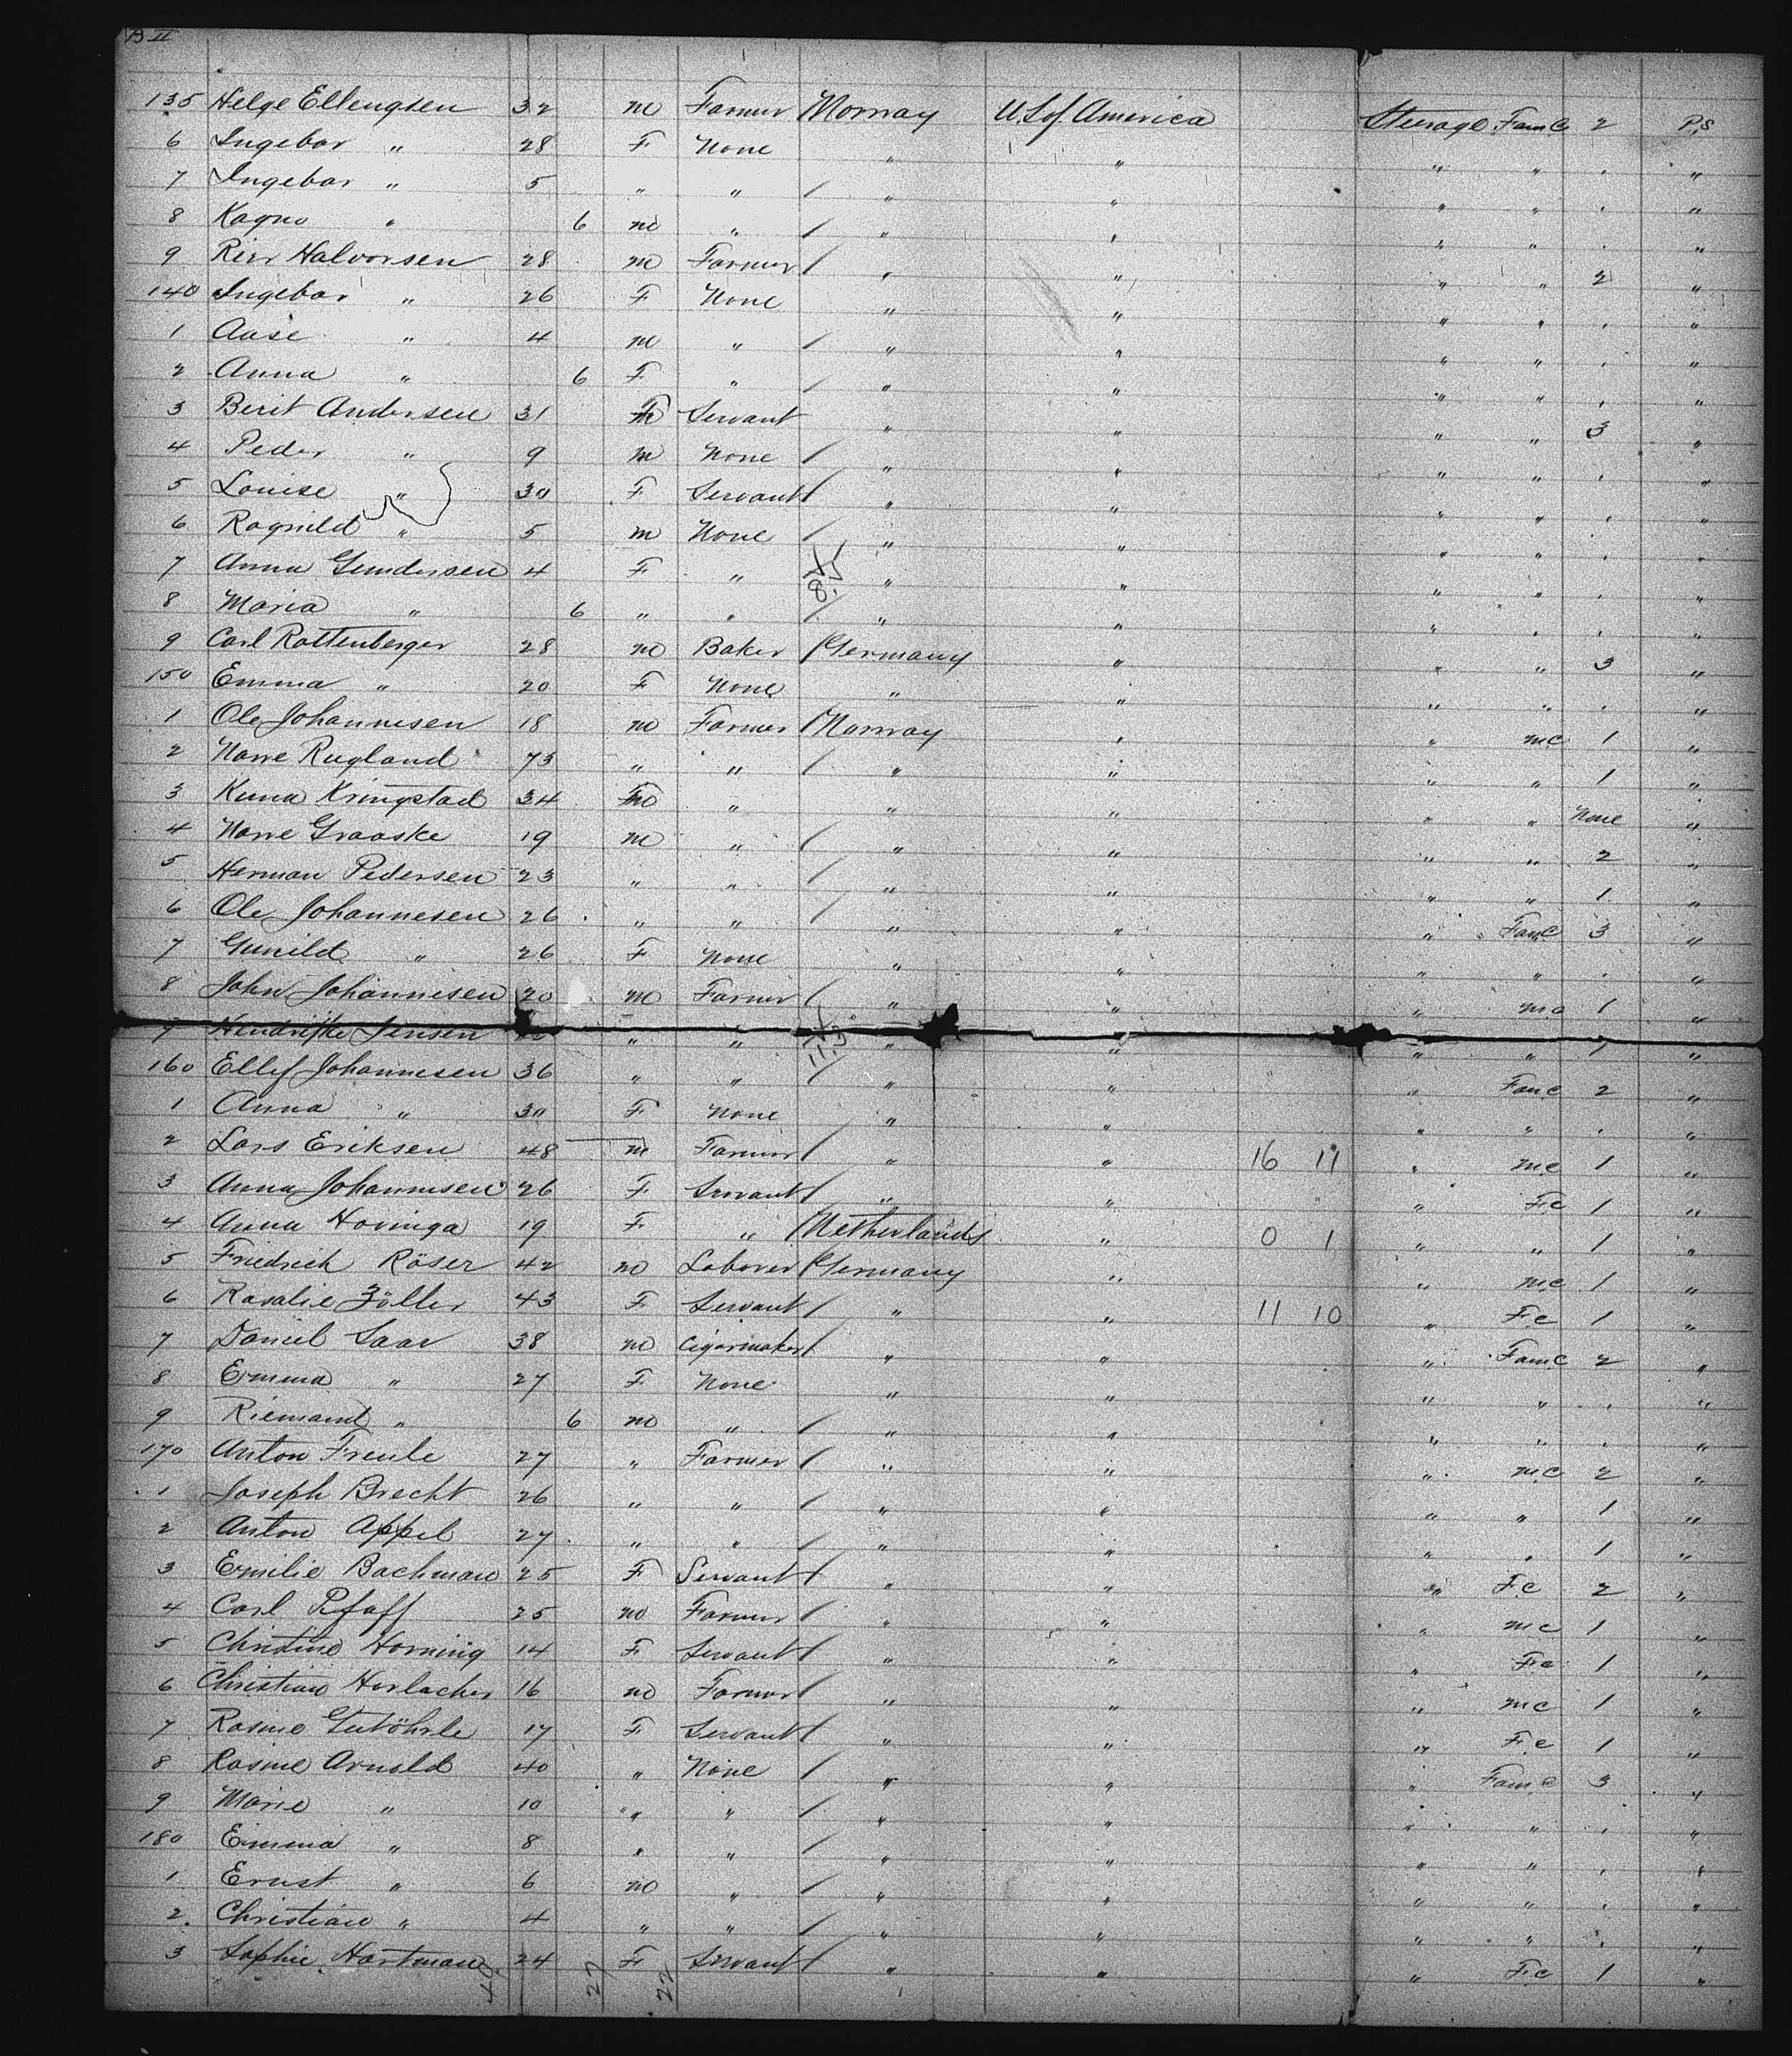 B II
135 Helge Ellengsen 32 m Farmer Norway U.S. of America Steerage Fam.C 2 P,S
6 Ingebor " 28 F None " " " " . "
7 Ingebor " 5 " " / " " " " . "
8 " 6 m " / " " " " . "
9 Halvorsen 28 m Farmer / " " " " 2 "
140 Ingebor " 26 F None " " " " . "
1 Aase " 4 m " / " " " " . "
2 Anna " 6 F " / " " " " . "
3 Berit Andersen 31 F Servant " " " " 3 "
4 Peder " 9 m None / " " " " . "
5 Louise " 30 F Servant / " " " " . "
6 Ragnild " 5 m None / " " " " . "
7 Anna Gundersen 4 F " " " " " . "
8 Maria " 6 " " / " " " " . "
9 Carl Rottenberger 28 m Baker / Germany " " " 3 "
150 Emma " 20 F None " " " " . "
1 Ole Johannesen 18 m Farmer / Norway " " m.C 1 "
2 Rugland 73 " " / " " " " 1 "
3 Kringstad 34 " " " " " None "
4 Graaske 19 m " / " " " " 2 "
5 Herman Pedersen 23 " " / " " " " 1 "
6 Ole Johannesen 26 " " / " " " Fam.C 3 "
7 Gunild " 26 F None " " " " . "
8 John Johannesen 20 m Farmer / " " " m.c 1 "
9 Jensen " " " " " " 1 "
160 Ellef Johannesen 36 " " / " " " Fam.C 2 "
1 Anna " 30 F None " " " " . "
2 Lars Eriksen 48 m Farmer / " " 16 11 " m.c 1 "
3 Anna Johannesen 26 F Servant / " " " F.c 1 "
4 Anna Hovinga 19 F " / Netherlands " 0 1 " " 1 "
5 Friedrich Röser 42 m Laborer / Germany " " m.c 1 "
6 Rosalie Zöller 43 F Servant / " " 11 10 " F.c 1 "
7 Daniel Saar 38 m Cigarmaker / " " " Fam.C 2 "
8 Emma " 27 F None " " " " . "
9 " 6 m " / " " " " . "
170 Anton Freule 27 " Farmer / " " " m.c 2 "
1 Joseph Brecht 26 " " / " " " " 1 "
2 Anton Appel 27 " " / " " " " 1 "
3 Emilie Bachman 25 F Servant / " " " F.c 2 "
4 Carl Pfaff 25 m Farmer / " " " m.c 1 "
5 Christine Horning 14 F Servant / " " " F.c 1 "
6 Christian Horlacher 16 m Farmer / " " " m.c 1 "
7 Rosine 17 F Servant / " " " F.c 1 "
8 Rosine Arnold 40 " None / " " " Fam.c 3 "
9 Marie " 10 " " / " " " " . "
180 Emma " 8 " " / " " " " . "
1 Ernst " 6 m " / " " " " . "
2 Christian " 4 " " / " " " " . "
3 Sophie Hartman 24 F Servant / " " " F.c 1 "
27 22